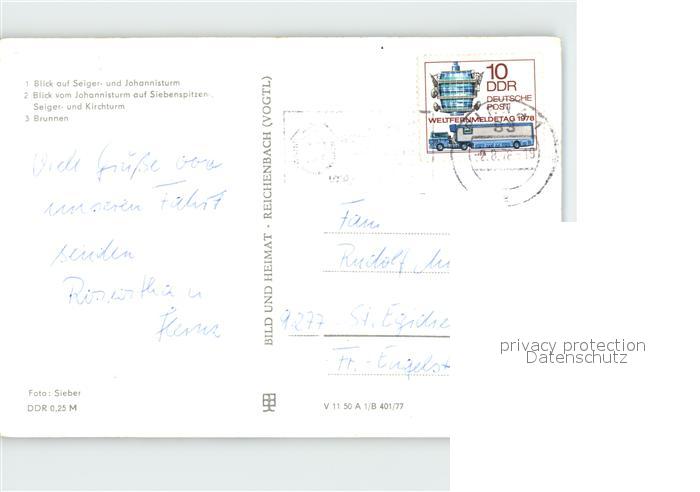 1 Blick auf Seiger- und Johannisturm
2 Blick vom Johannisturm auf Siebenspitzen-,
Seiger- und Kirchturm
3 Brunnen
Viele Grüße von
unserer Fahrt
senden
Roswitha u
Heinz
Foto: Sieber
DDR 0,25 M
BILD UND HEIMAT · REICHENBACH (VOGTL)
V 11 50 A 1/B 401/77
10
DDR
DEUTSCHE
POST
WELTFERNMELDETAG 1978
83
Fam
Rudolf
9277 St. Egidie
Fr.-Engelst
privacy protection
Datenschutz